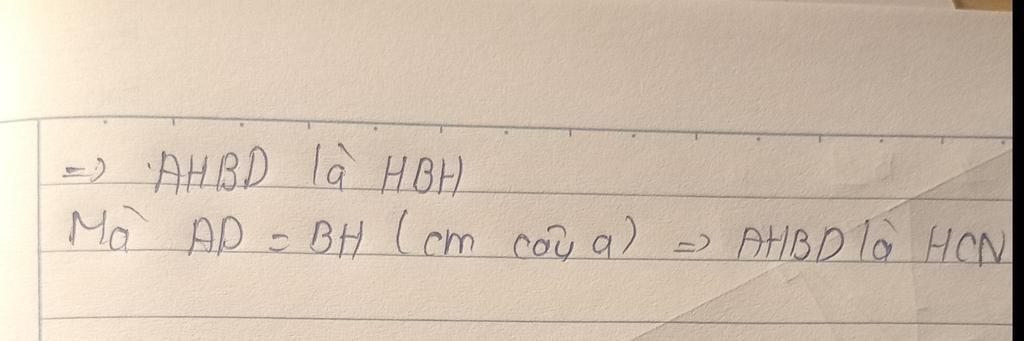 => AHBD là HBH
Mà AD = BH ( cm câu a) => AHBD là HCN